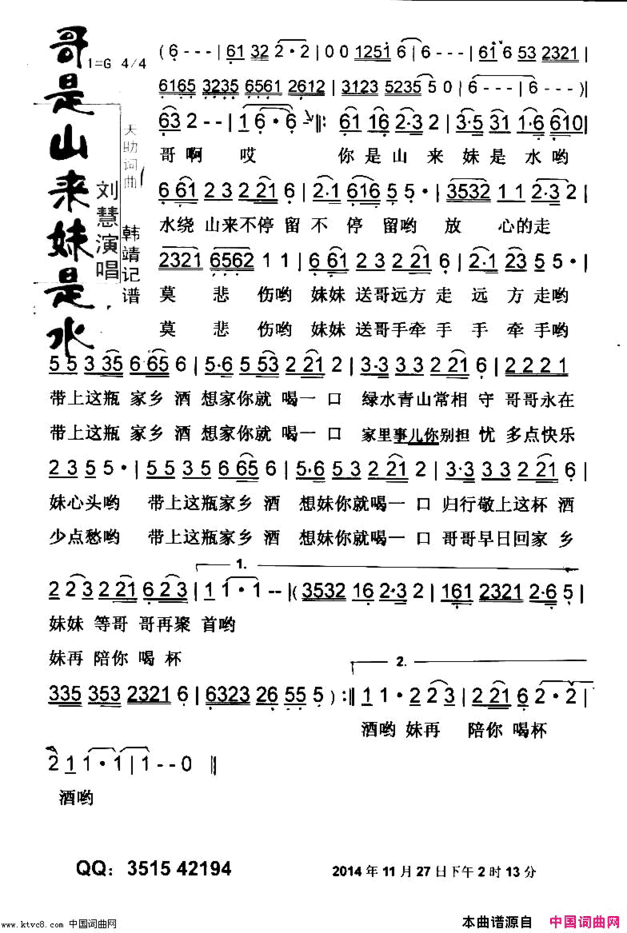 哥是山来妹是水
1=G 4/4
天助词曲
刘慧演唱
韩靖记谱
(6---|61 32 2·2|00 1251 6|6---|61 6 53 2321|
6165 3235 6561 2612|3123 5235 5 0|6---|6---)|
63 2--|1 6·6 ‖: 61 16 2·3 2|3·5 31 1·6 610|
哥啊 哎 你是山 来 妹 是 水 哟
6 61 2 3 2 21 6|2·1 616 5 5·|3532 1 1 2·3 2|
水绕 山来不停 留 不 停 留哟 放 心的走
2321 6562 1 1|6 61 2 3 2 21 6|2·1 23 5 5·|
莫 悲 伤哟 妹妹 送哥远方 走 远 方 走哟
莫 悲 伤哟 妹妹 送哥手牵 手 手 牵 手哟
55 3 35 6 65 6|5·6 5 53 2 21 2|3·3 33 3 21 6|22 21
带上这瓶 家乡 酒 想家你就 喝一 口 绿水青山常相 守 哥哥永在
带上这瓶 家乡 酒 想家你就 喝一 口 家里事儿你别担 忧 多点快乐
2 35 5·|55 35 6 65 6|5·6 53 2 21 2|3·3 33 2 21 6|
妹心头哟 带上这瓶家乡 酒 想妹你就喝一 口 归行敬上这杯 酒
少点愁哟 带上这瓶家乡 酒 想妹你就喝一 口 哥哥早日回家 乡
1.
2 23 2 21 6 2 3|1 1·1--|(3532 16 2·3 2|161 2321 2·6 5|
妹妹 等哥 哥再聚 首哟
妹再 陪你 喝 杯
2.
335 353 2321 6|6323 26 55 5):‖1 1·2 2 3|2 21 6 2·2|
酒哟 妹再 陪你 喝杯
2 1 1·1|1--0‖
酒哟
QQ：3515 42194
2014年11月27日下午2时13分
www.ktvc8.com 中国词曲网
本曲谱源自 中国词曲网